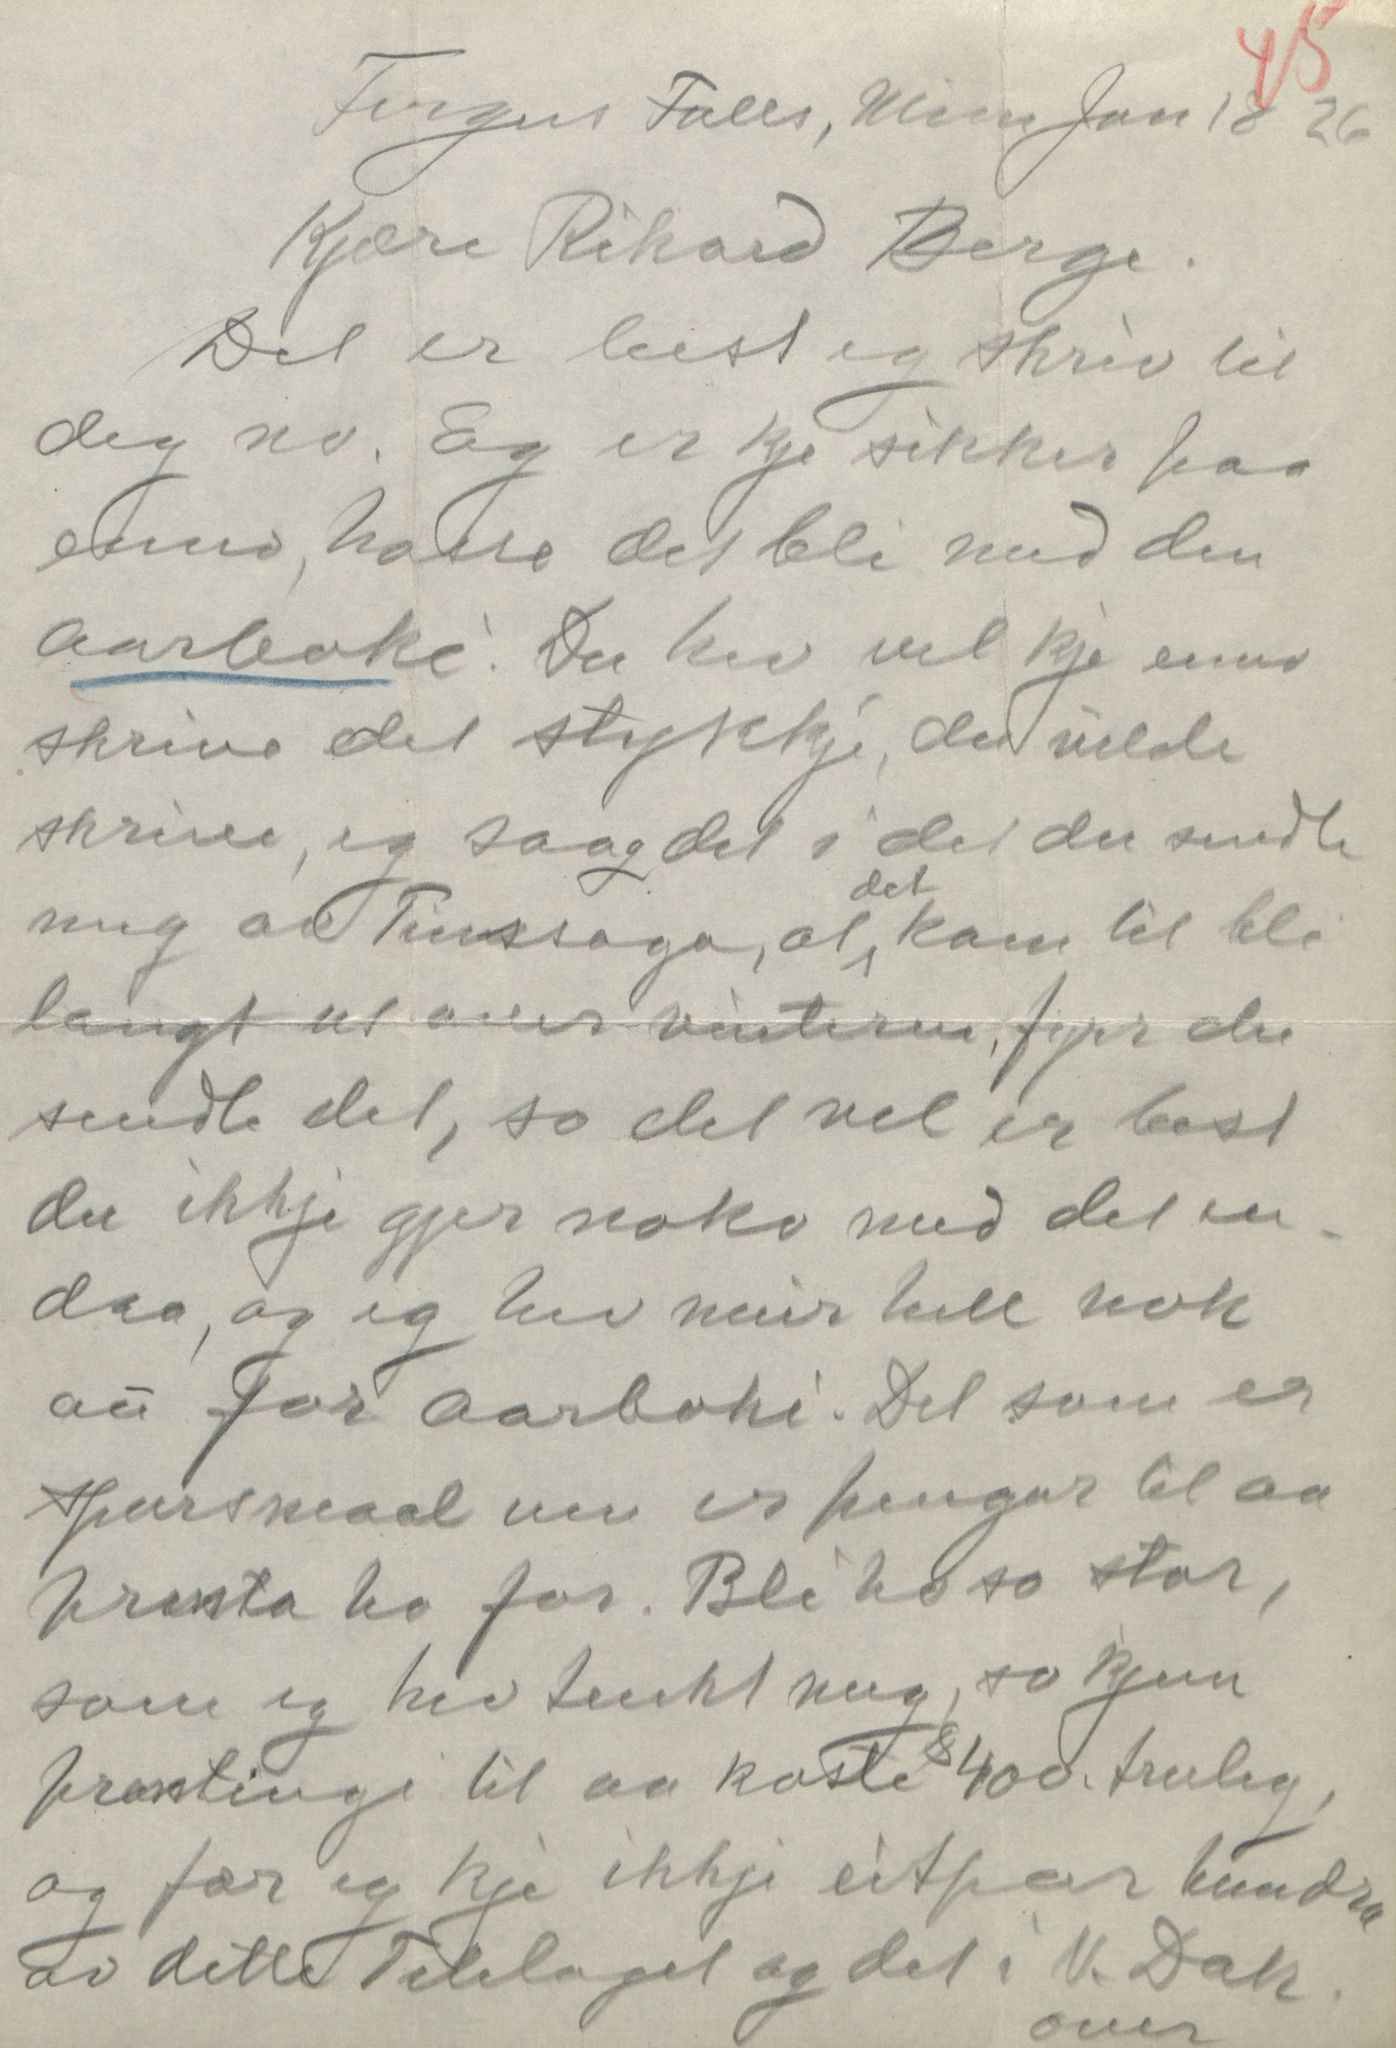 45
Fergus Falls, Minn Jan 18 26
Kjære Rikard Berge.
Det er best eg skriv til
deg no. Eg er kje sikker paa
enno, hosso det bli med den
aarboki. Du hev vel kje enno
skrive det stykkji, du vilde
skrive, eg saag det i det du sendte
meg av Tinssoga, at det kom til bli
langt ut over vinteren, fyrr du
sendte det, so det vel er best
du ikkji gjer noko med det en-
daa, og eg hev meir hell nok
au for aarboki. Det som er
spursmaal um er pengar til aa
prenta ho for. Bli ho so stor,
som eg hev tenkt meg, so kjem
prentingi til aa koste $400. truleg,
og fær eg kje ikkji eit par hundra
av dette Telelaget og det i N. Dak.
over